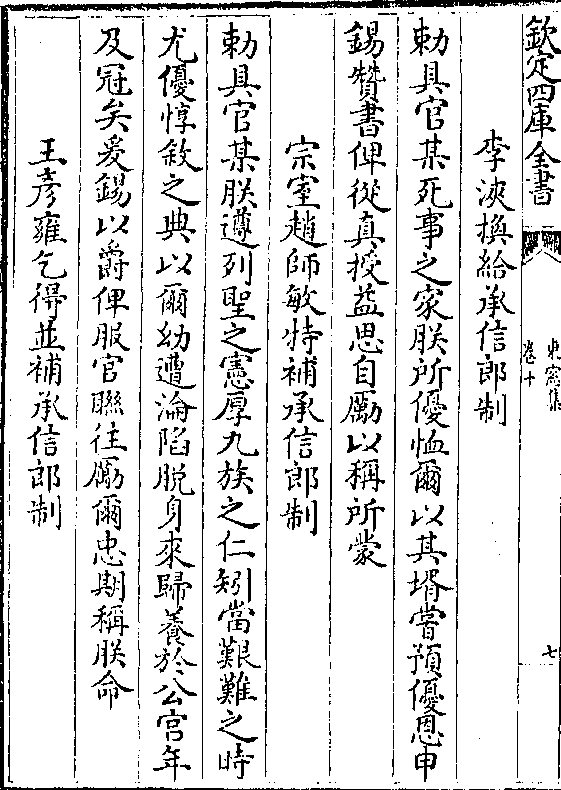 欽定四庫全書
東窻集
卷十
七
李浹換給承信郎制
勅具官某死事之家朕所優恤爾以其壻嘗預優恩申
錫贊書俾從真授益思自勵以稱所蒙
宗室趙師敏特補承信郎制
勅具官某朕遵列聖之憲厚九族之仁矧當艱難之時
尤優惇敘之典以爾幼遭淪陷脱身來歸養於公宫年
及冠矣爰錫以爵俾服官聯往勵爾忠期稱朕命
王彥雍乞得並補承信郎制